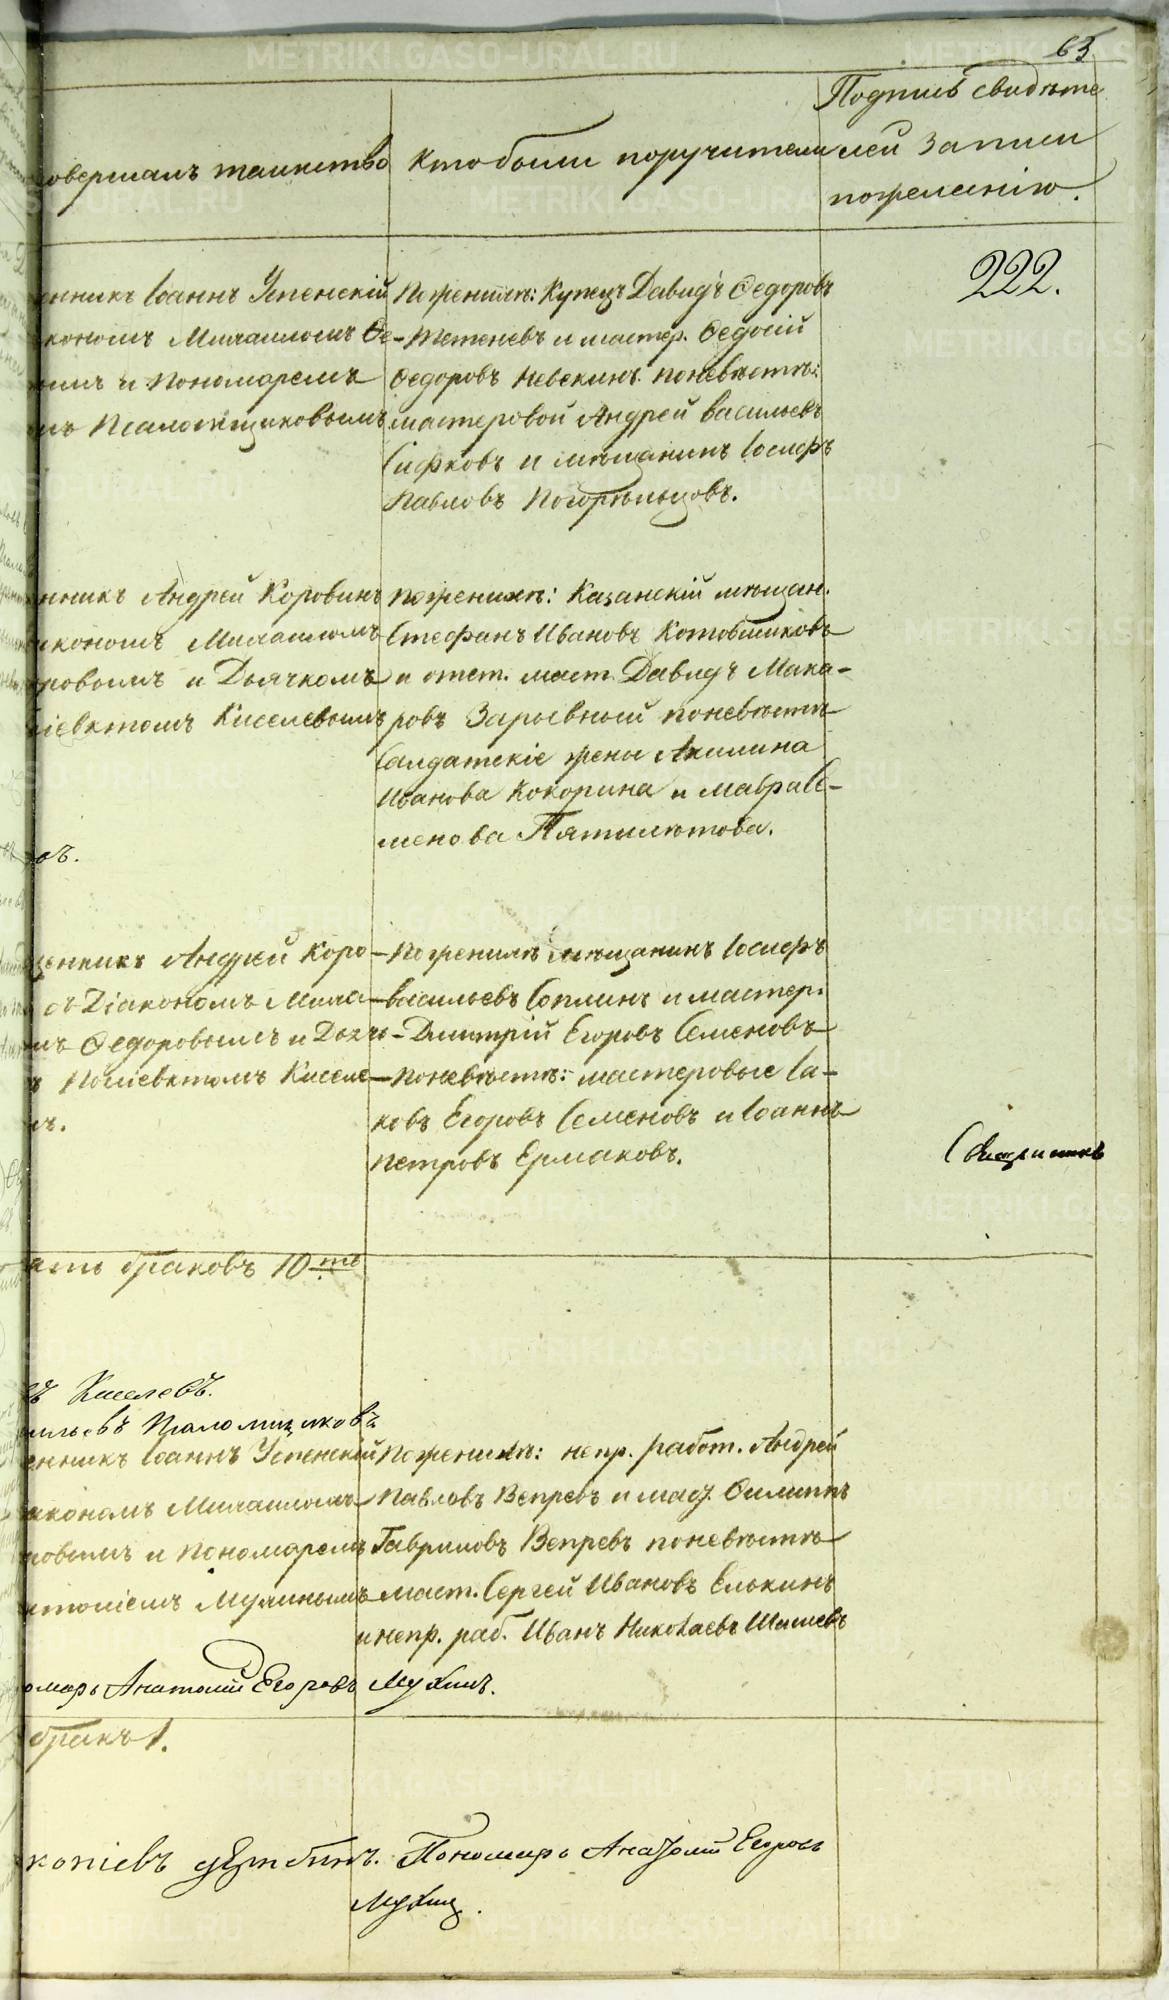 63
Подпись свидѣте
лей записи
пожеланію.
овершалъ таинство
Кто были поручители
222.
енникъ Іоаннъ Успенскій
кономъ Михаиломъ Ѳе-
ымъ и Пономаремъ
мъ Псаломщиковымъ
По женихѣ: Купецъ Давидъ Ѳедоровъ
Тетеневъ и мастер. Ѳедосій
Ѳедоровъ Невекинъ. по невѣстѣ:
мастеровой Андрей Васильевъ
Сифковъ и мѣщанинъ Іосифъ
Павловъ Погорѣльцовъ.
нникъ Андрей Коровинъ
іакономъ Михаиломъ
ровымъ и Дьячкомъ
ліевктомъ Киселевымъ
По женихѣ: Казанскій мѣщан.
Стефанъ Ивановъ Котовщиковъ
и отст. маст. Давидъ Мака-
ровъ Зарывный по невѣстѣ
Салдатскіе жены Акилина
Иванова Кокорина и Мавра Се-
менова Пятилѣтова.
въ.
щенникъ Андрей Коро-
съ Діакономъ Миха-
мъ Ѳедоровымъ и Дьячко-
ъ Поліевктомъ Киселе-
мъ.
По женихѣ мѣщанинъ Іосифъ
Васильевъ Соплинъ и мастер.
Дмитрій Егоровъ Семеновъ
По невѣстѣ: мастеровые Іа-
ковъ Егоровъ Семеновъ и Іоаннъ
Петровъ Ермаковъ.
Священникъ
ать браковъ 10-ть
въ Киселевъ.
сильевъ Псаломщиковъ
енникъ Іоаннъ Успенскій
акономъ Михаиломъ
ровымъ и Пономаремъ
атоліемъ Мухинымъ
По женихѣ: непр. работ. Андрей
Павловъ Вепревъ и мас. Филиппъ
Гавриловъ Вепревъ по невѣстѣ
маст. Сергей Ивановъ Елькинъ
и непр. раб. Иванъ Николаевъ Шишевъ
омарь Анатолій Егоровъ Мухинъ.
бракъ 1.
копіевъ Пономарь Анатолій Егоровъ
Мухинъ.